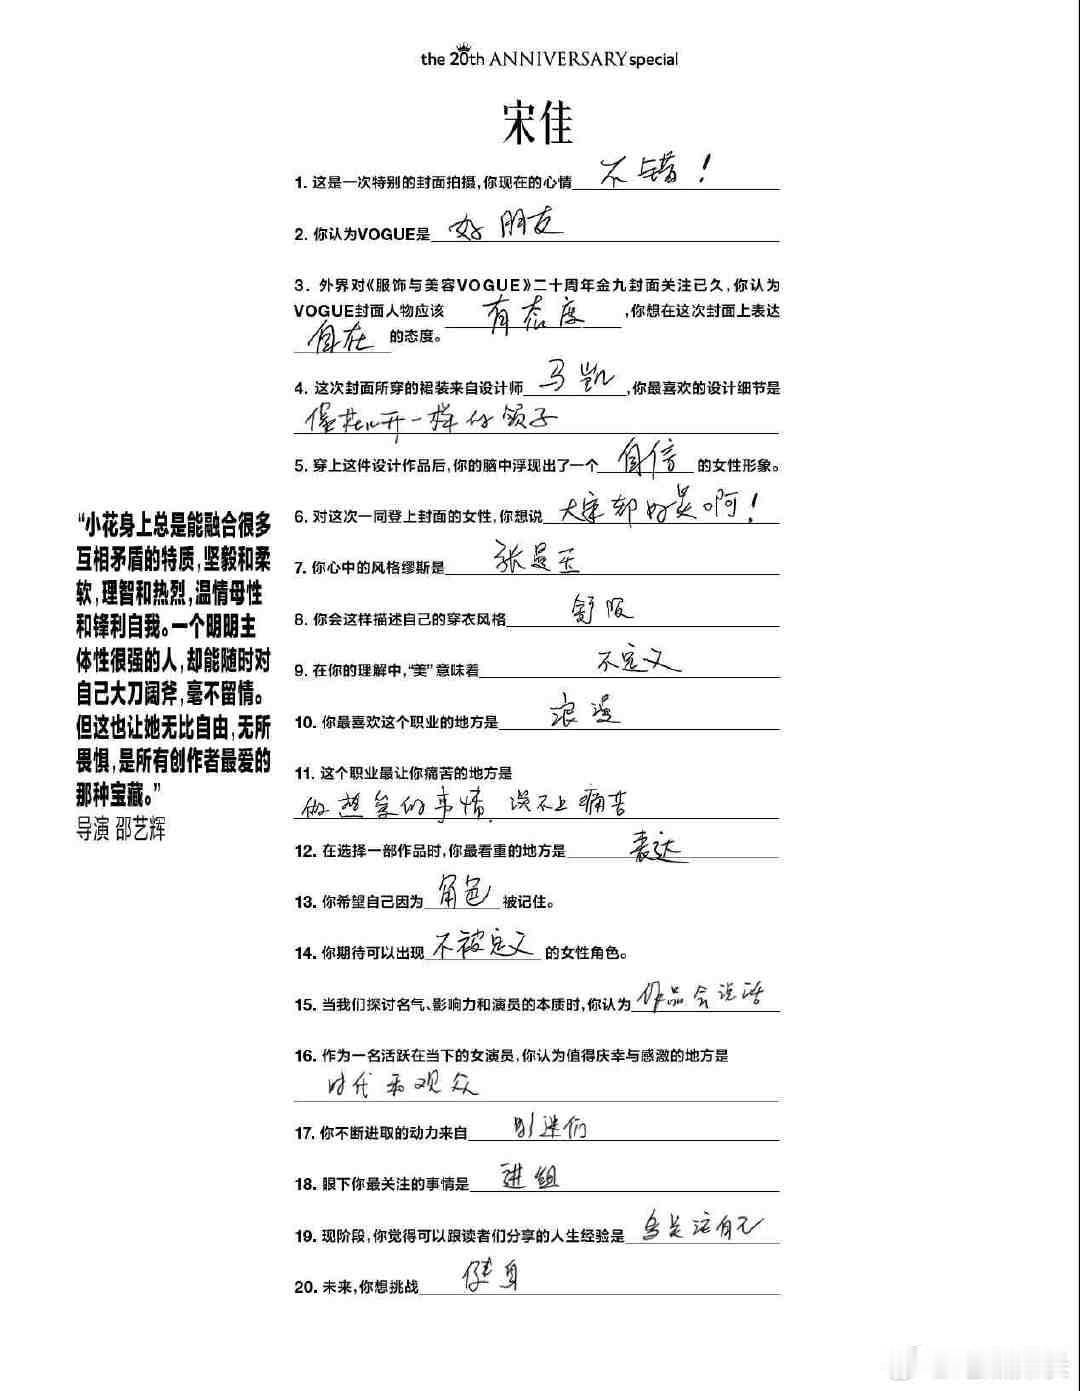 the 20th ANNIVERSARY special
宋佳
1. 这是一次特别的封面拍摄,你现在的心情 不错!
2. 你认为VOGUE是 好朋友
3. 外界对《服饰与美容VOGUE》二十周年金九封面关注已久,你认为
VOGUE封面人物应该 有态度 ,你想在这次封面上表达
自在 的态度。
4. 这次封面所穿的裙装来自设计师 马凯 ,你最喜欢的设计细节是
像花儿开一样的领子
5. 穿上这件设计作品后,你的脑中浮现出了一个 自信 的女性形象。
6. 对这次一同登上封面的女性,你想说 大家都好美啊!
7. 你心中的风格缪斯是 张曼玉
8. 你会这样描述自己的穿衣风格 舒服
9. 在你的理解中,“美”意味着 不定义
10. 你最喜欢这个职业的地方是 浪漫
11. 这个职业最让你痛苦的地方是
做想做的事情,谈不上痛苦
12. 在选择一部作品时,你最看重的地方是 表达
13. 你希望自己因为 角色 被记住。
14. 你期待可以出现 不被定义 的女性角色。
15. 当我们探讨名气、影响力和演员的本质时,你认为 作品会说话
16. 作为一名活跃在当下的女演员,你认为值得庆幸与感激的地方是
时代和观众
17. 你不断进取的动力来自 影迷们
18. 眼下你最关注的事情是 进组
19. 现阶段,你觉得可以跟读者们分享的人生经验是
20. 未来,你想挑战 健身
“小花身上总是能融合很多
互相矛盾的特质,坚毅和柔
软,理智和热烈,温情母性
和锋利自我。一个明明主
体性很强的人,却能随时对
自己大刀阔斧,毫不留情。
但这也让她无比自由,无所
畏惧,是所有创作者最爱的
那种宝藏。”
导演 邵艺辉